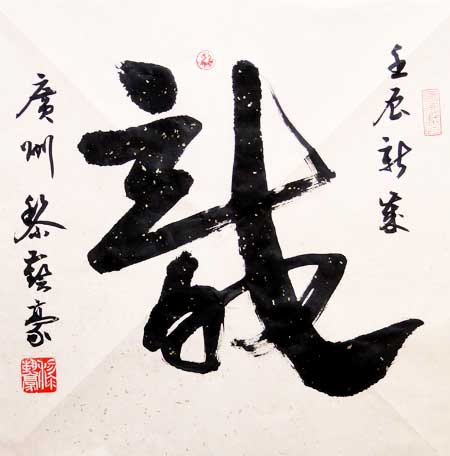 壬辰新歲
龍
廣州黎藝豪